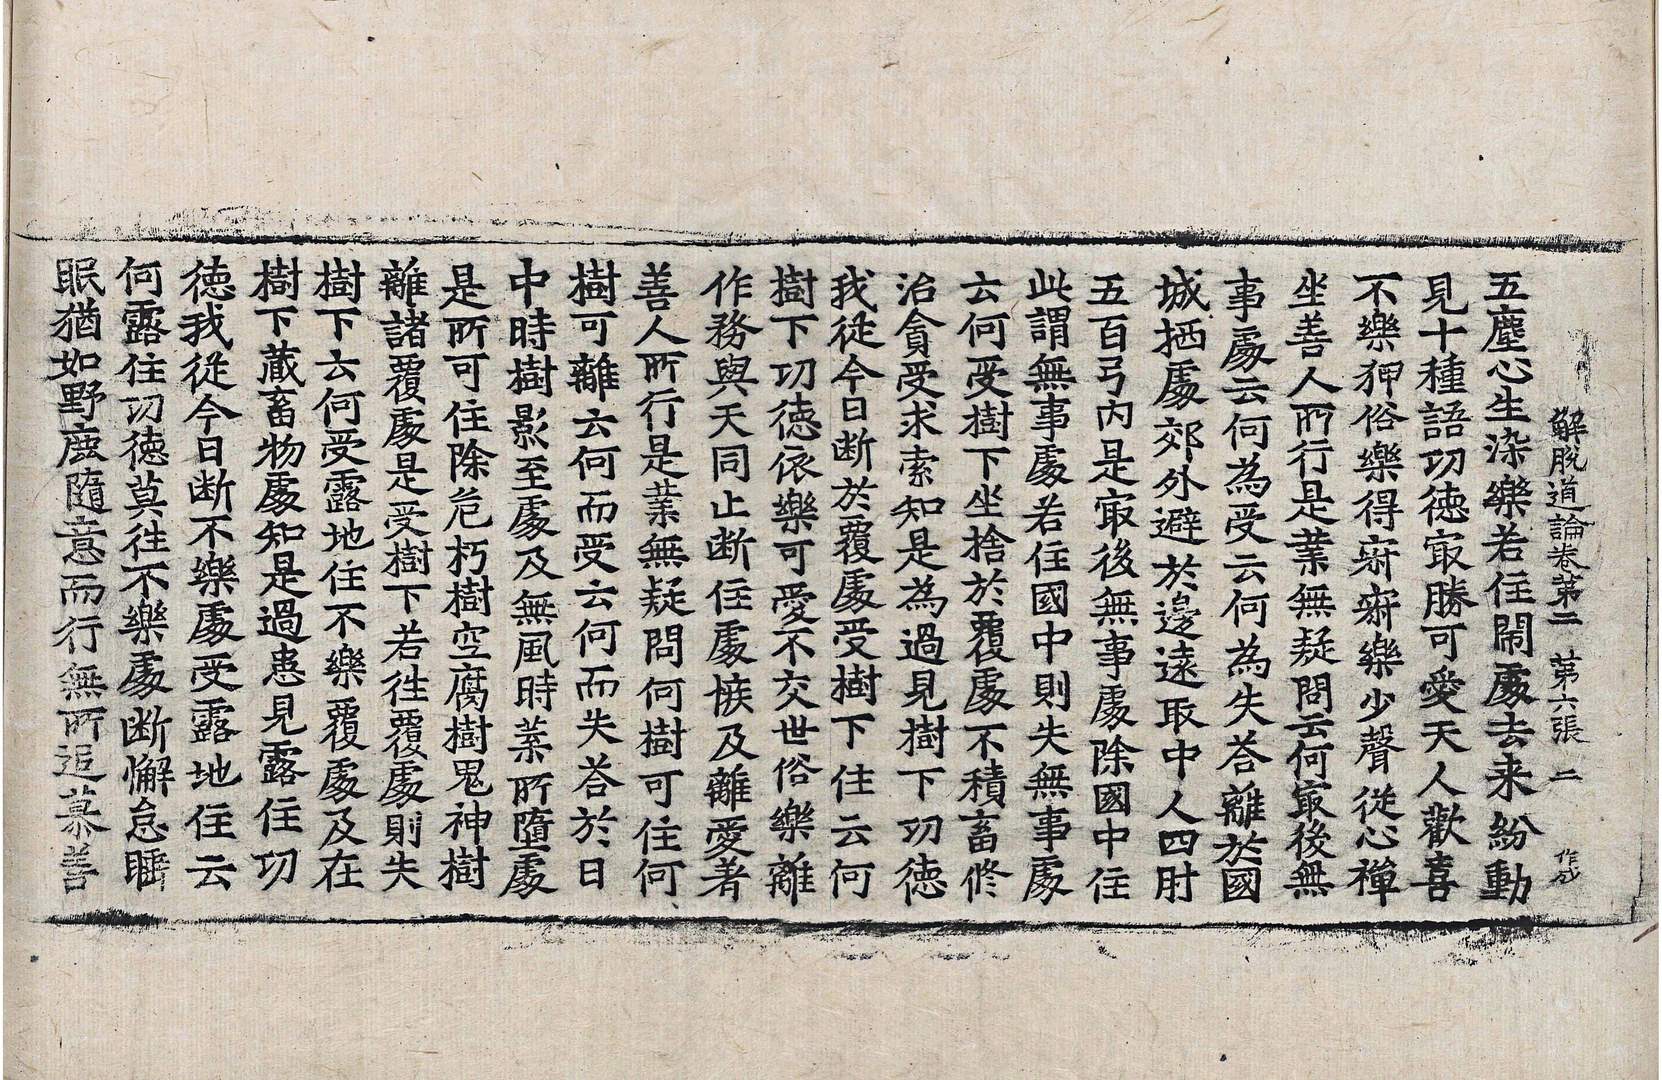 解脫道論卷第二 第六張 二
五塵心生染樂若住閙處去来紛動
見十種語功徳㝡勝可愛天人歡喜
不樂狎俗樂得寂寂樂少聲從心禪
坐善人所行是業無疑問云何㝡後無
事處云何為受云何為失荅離於國
城栖處郊外避於邊遠取中人四肘
五百弓内是㝡後無事處除國中住
此謂無事處若住國中則失無事處
云何受樹下坐捨於覆處不積畜修
治貪受求索知是為過見樹下功徳
我從今日断於覆處受樹下住云何
樹下功徳依樂可愛不交世俗樂離
作務與天同止断住處嫉及離愛著
善人所行是業無疑問何樹可住何
樹可離云何而受云何而失荅於日
中時樹影至處及無風時葉所墮處
是所可住除危朽樹空腐樹鬼神樹
離諸覆處是受樹下若徃覆處則失
樹下云何受露地住不樂覆處及在
樹下藏畜物處知是過患見露住功
徳我從今日断不樂處受露地住云
何露住功徳莫徃不樂處断懈怠睡
眠猶如野鹿隨意而行無所追慕善